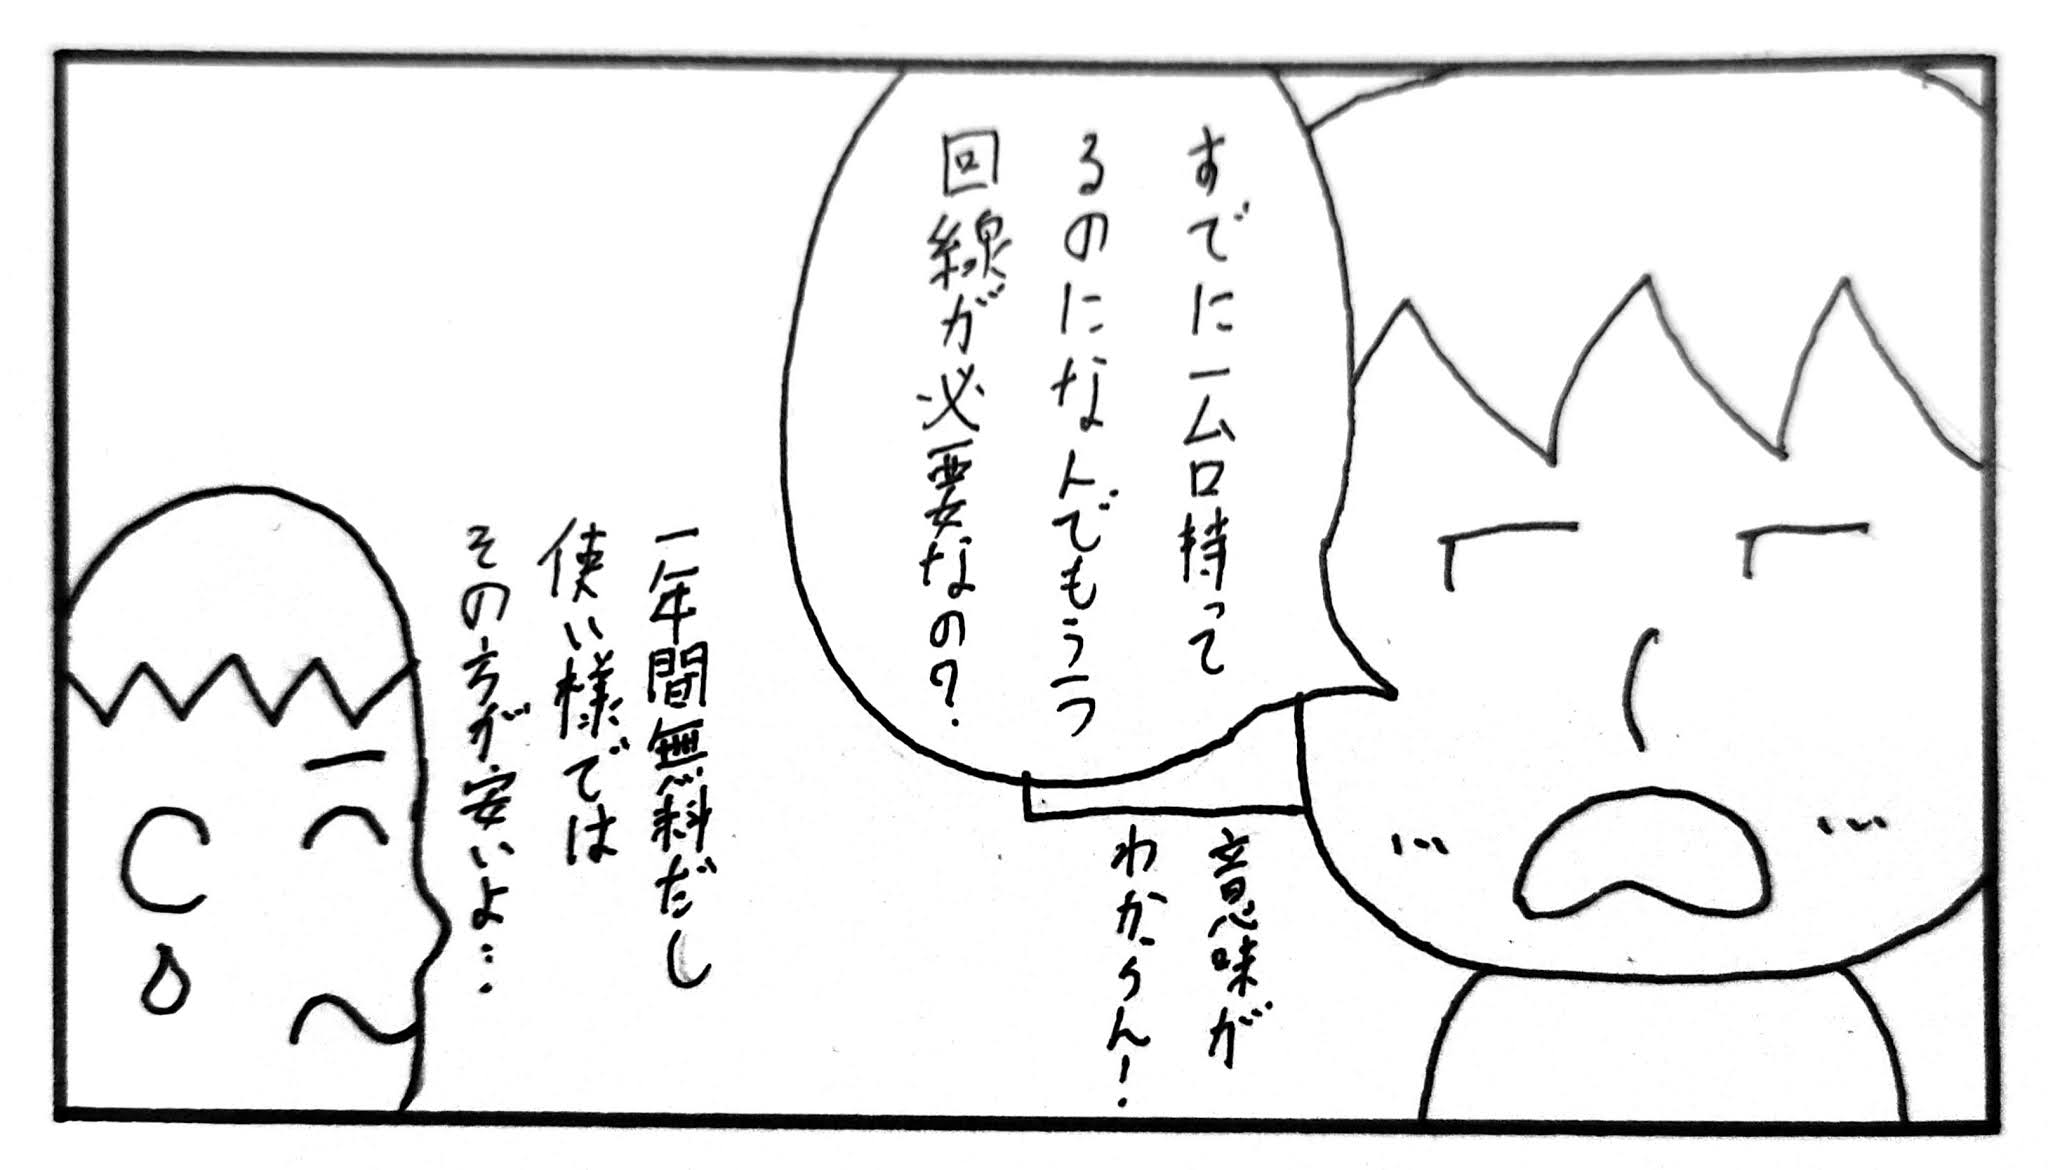 すでに一ム口持って
るのになんでもう一つ
回線が必要なの?
意味が
わからん!
一年間無料だし
使い様では
その方が安いよ…